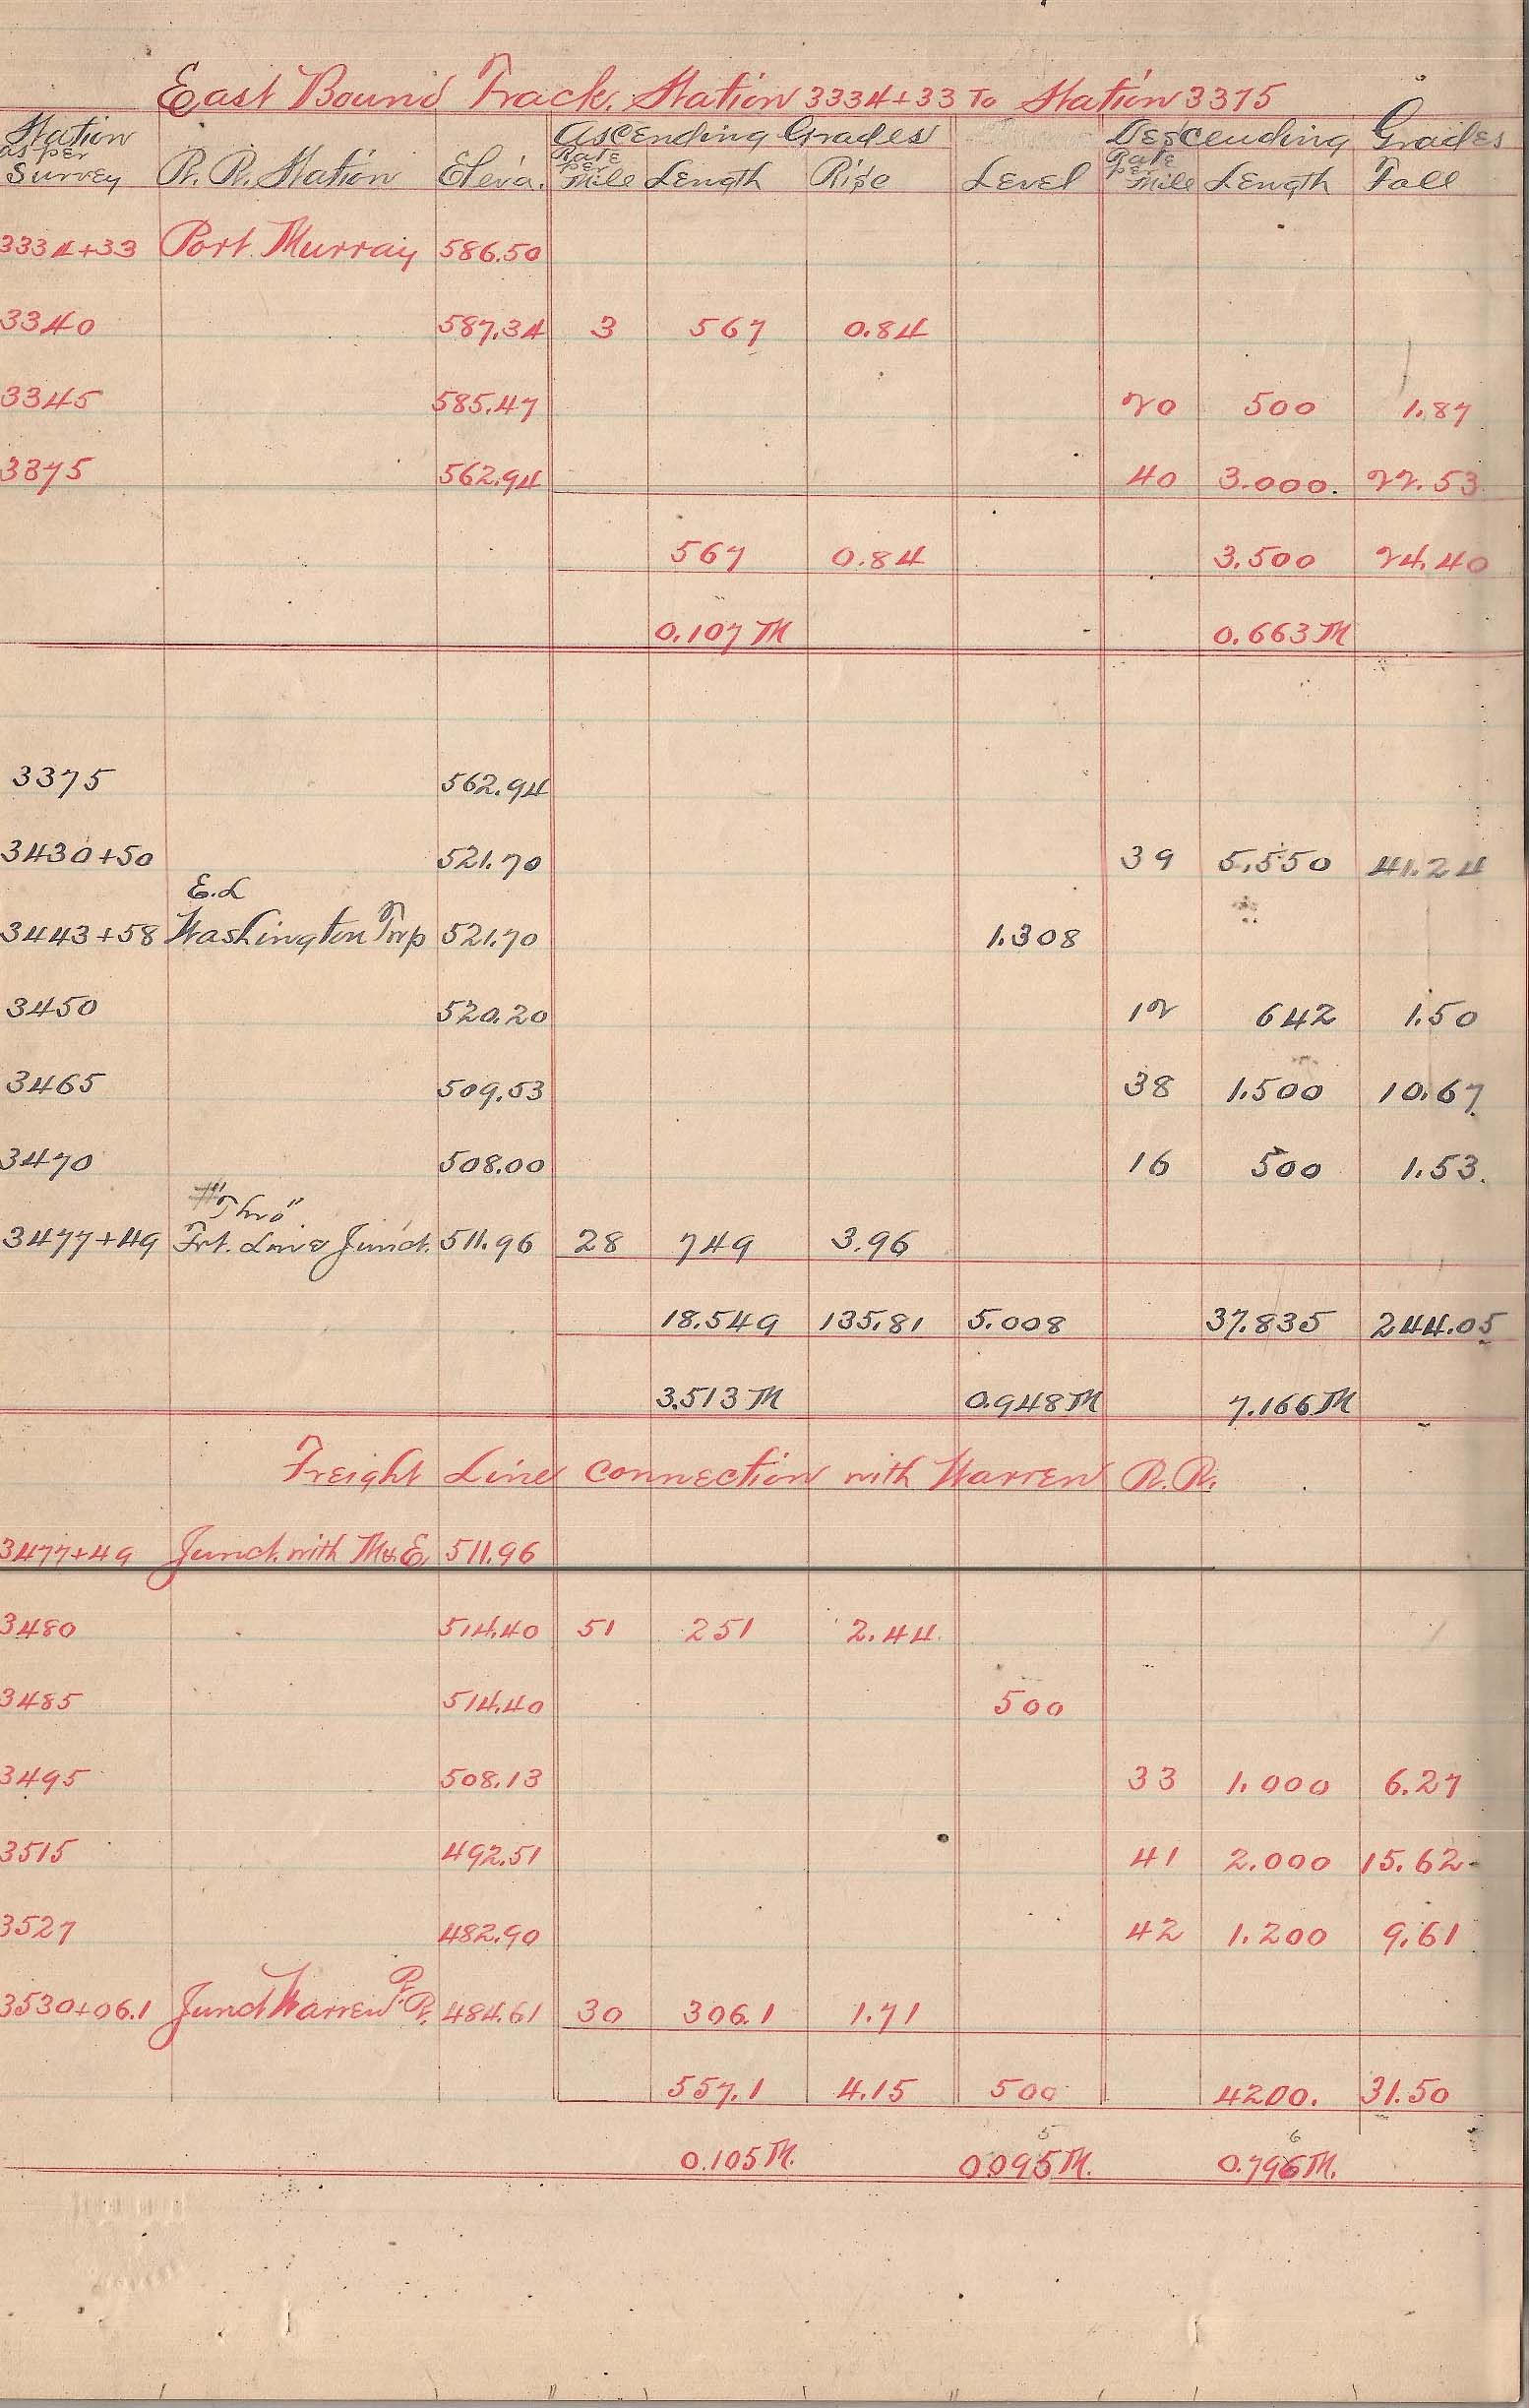 East Bound Track. Station 3334+33 To Station 3375
Station as per Survey R. R. Station Eleva. Ascending Grades Rate per Mile Length Rise Level Descending Grades Rate per Mile Length Fall
3334+33 Port Murray 586.50
3340 587.34 3 567 0.84
3345 585.47 20 500 1.87
3375 562.94 40 3.000. 22.53
567 0.84 3.500 24.40
0.107 M 0.663 M
3375 562.94
3430+50 521.70 39 5.550 41.24
E.L
3443+58 Washington Twp 521.70 1.308
3450 520.20 12 642 1.50
3465 509.53 38 1.500 10.67
3470 508.00 16 500 1.53.
"Thro"
3477+49 Frt. Line Junct. 511.96 28 749 3.96
18.549 135.81 5.008 37.835 244.05
3.513 M 0.948 M 7.166 M
Freight Line connection with Warren R.R.
3477+49 Junct. with M&E. 511.96
3480 514.40 51 251 2.44
3485 514.40 500
3495 508.13 33 1.000 6.27
3515 492.51 41 2.000 15.62
3527 482.90 42 1.200 9.61
3530+06.1 Junct Warren R.R. 484.61 30 306.1 1.71
557.1 4.15 500 4200. 31.50
5 6
0.105 M. 0.095 M. 0.796 M.